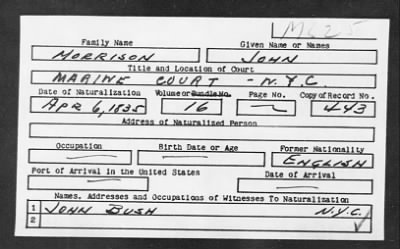 M625
Family Name Given Name or Names
MORRISON JOHN
Title and Location of Court
MARINE COURT - N.Y.C
Date of Naturalization Volume or Bundle No. Page No. Copy of Record No.
APR 6, 1835 16 — 443
Address of Naturalized Person
Occupation Birth Date or Age Former Nationality
— — ENGLISH
Port of Arrival in the United States Date of Arrival
— —
Names, Addresses and Occupations of Witnesses To Naturalization
1 JOHN BUSH N.Y.C.
2